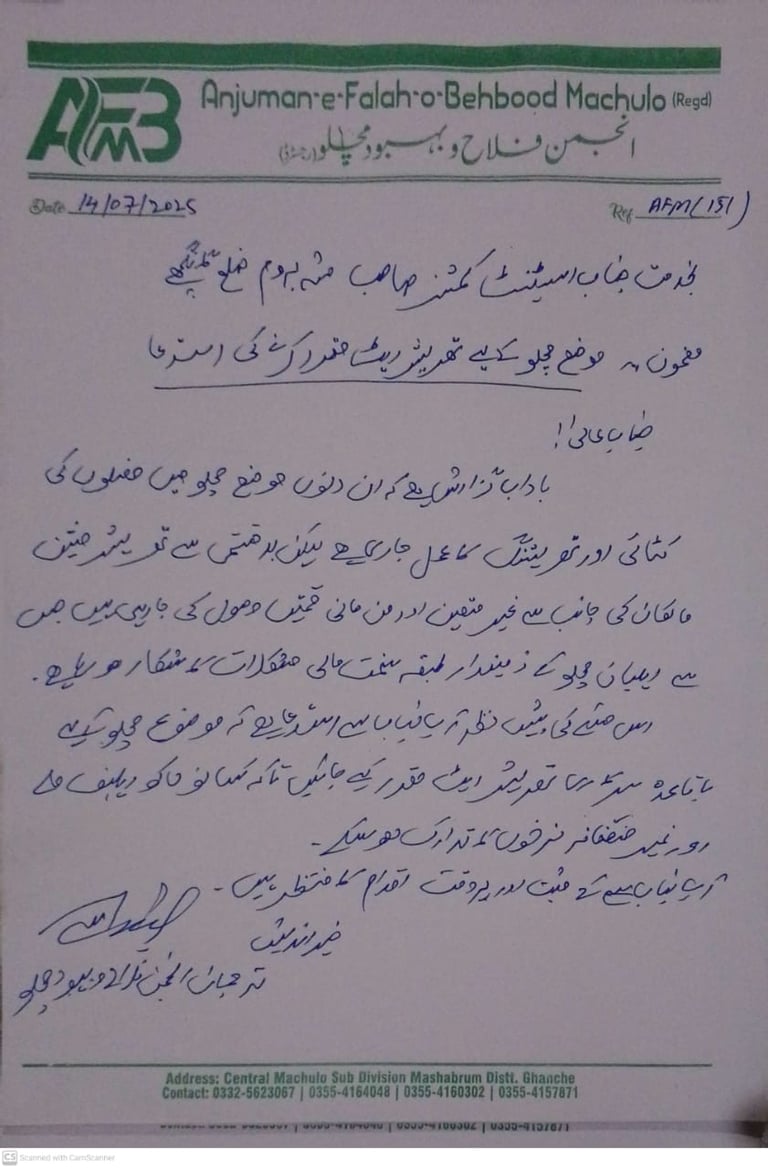 AFMB
Anjuman-e-Falah-o-Behbood Machulo (Regd)
انجمن فلاح و بہبود مچلو (رجسٹرڈ)
Date 14/07/2025
Ref AFM(151)
بخدمت جناب اسسٹنٹ کمشنر صاحب مشہ بروم ضلع گانچھے
مضمون :۔ موضع مچلو کے لیے تھریشر ریٹ مقرر کرنے کی استدعا
جناب عالی!!
باداب گزارش ہے کہ ان دنوں موضع مچلو میں فصلوں کی
کٹائی اور تھریشنگ کا عمل جاری ہے لیکن بدقسمتی سے تھریشر مشین
مالکان کی جانب سے غیر متعین اور من مانی قیمتیں وصول کی جارہی ہیں جس
سے اہلیان مچلو کے زمیندار طبقہ سخت مالی مشکلات کا شکار ہو رہا ہے۔
اس مسئلے کی پیش نظر آپ جناب سے استدعا ہے کہ موضوع مچلو کے لیے
باقاعدہ سرکاری تھریشر ریٹ مقرر کیے جائیں تاکہ کسانوں کو ریلیف ملے
اور غیر منصفانہ نرخوں کا تدارک ہو سکے۔
آپ جناب سے کے مثبت اور بروقت اقدام کا منتظر ہیں۔
خیر اندیش
ترجمان انجمن فلاح و بہبود مچلو
Address: Central Machulo Sub Division Mashabrum Distt. Ghanche
Contact: 0332-5623067 | 0355-4164048 | 0355-4160302 | 0355-4157871
CS Scanned with CamScanner